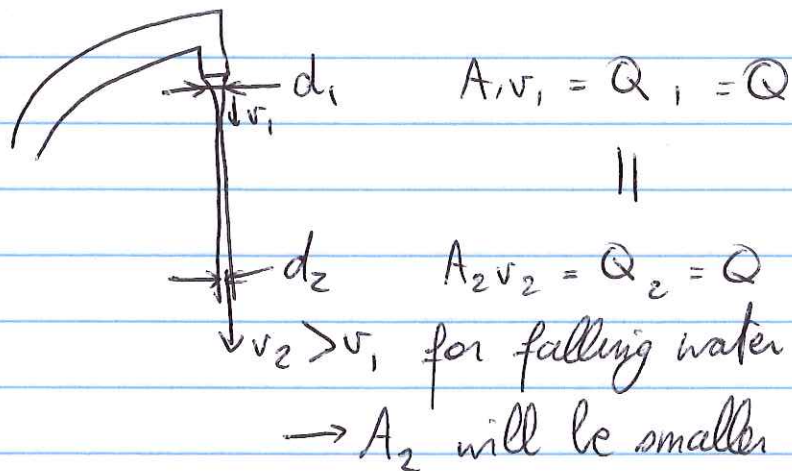 d₁ A₁v₁ = Q₁ = Q
v₁
||
d₂ A₂v₂ = Q₂ = Q
v₂ > v₁ for falling water
→ A₂ will be smaller